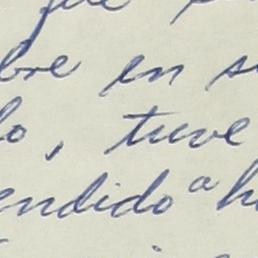 que
bre en su
lo, tuve
endido a h